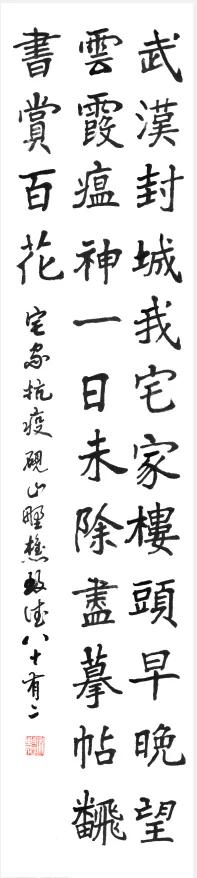 武漢封城我宅家樓頭早晚望
雲霞瘟神一日未除盡摹帖飜
書賞百花
宅家抗疫硯山野樵毅德八十有二